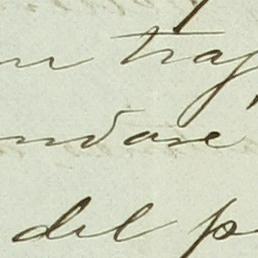 un traj
ndose
del p